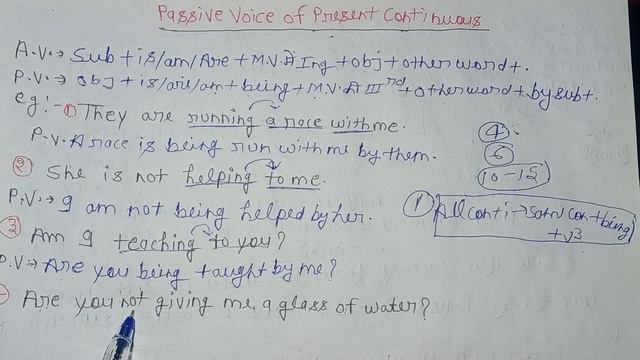 Passive Voice of Present Continuous
A.V.→ Sub + is/am/Are + M.V. Ing + obj + other word + .
P.V.→ obj + is/are/am + being + M.V. III rd + other word + by sub + .
eg:- ① They are running a race with me.
P.V. A race is being run with me by them.
② She is not helping to me.
P.V.→ I am not being helped by her.
③ Am I teaching to you?
P.V→ Are you being taught by me?
Are you not giving me a glass of water?
④
⑥
10-15
① All conti → + being
+ v3